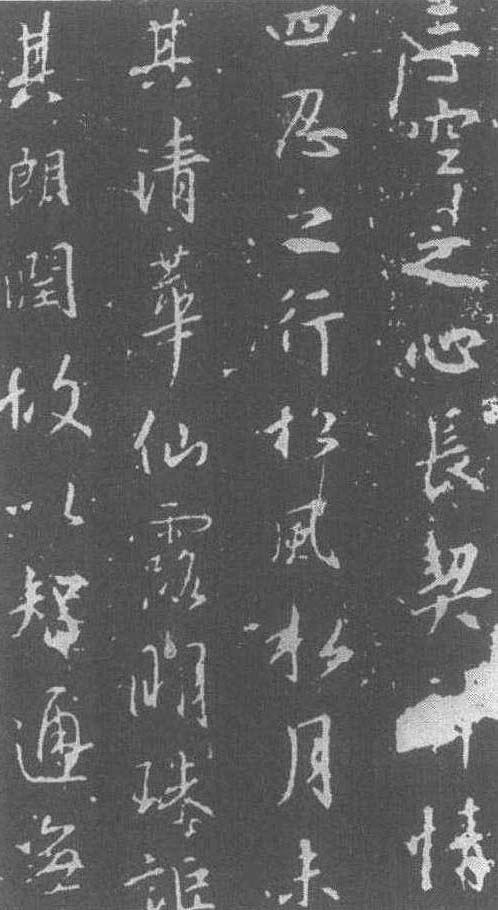 空之心長契情
四忍之行松風松月未
其清華仙露明珠詎
其朗潤故以智通無